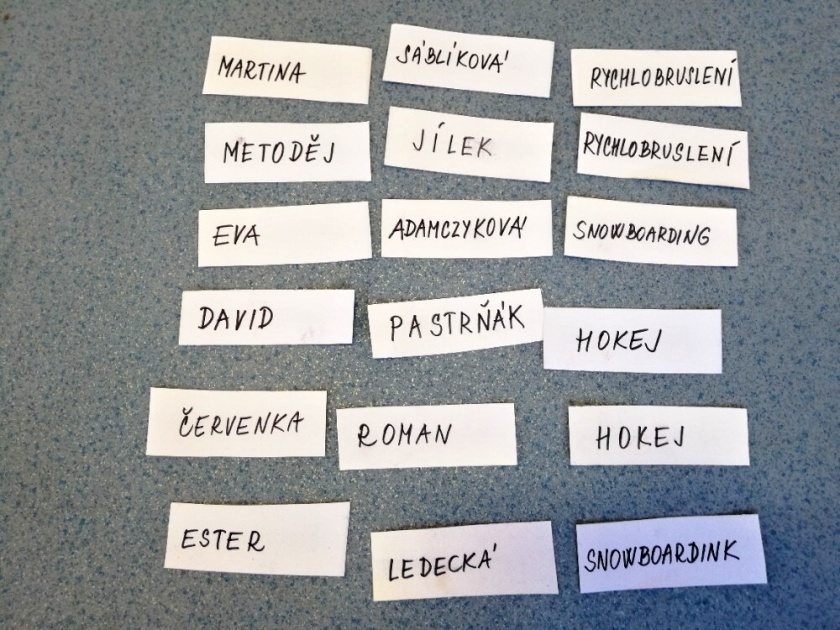 MARTINA SÁBLÍKOVÁ RYCHLOBRUSLENÍ
METODĚJ JÍLEK RYCHLOBRUSLENÍ
EVA ADAMCZYKOVÁ SNOWBOARDING
DAVID PASTRŇÁK HOKEJ
ČERVENKA ROMAN HOKEJ
ESTER LEDECKÁ SNOWBOARDINK